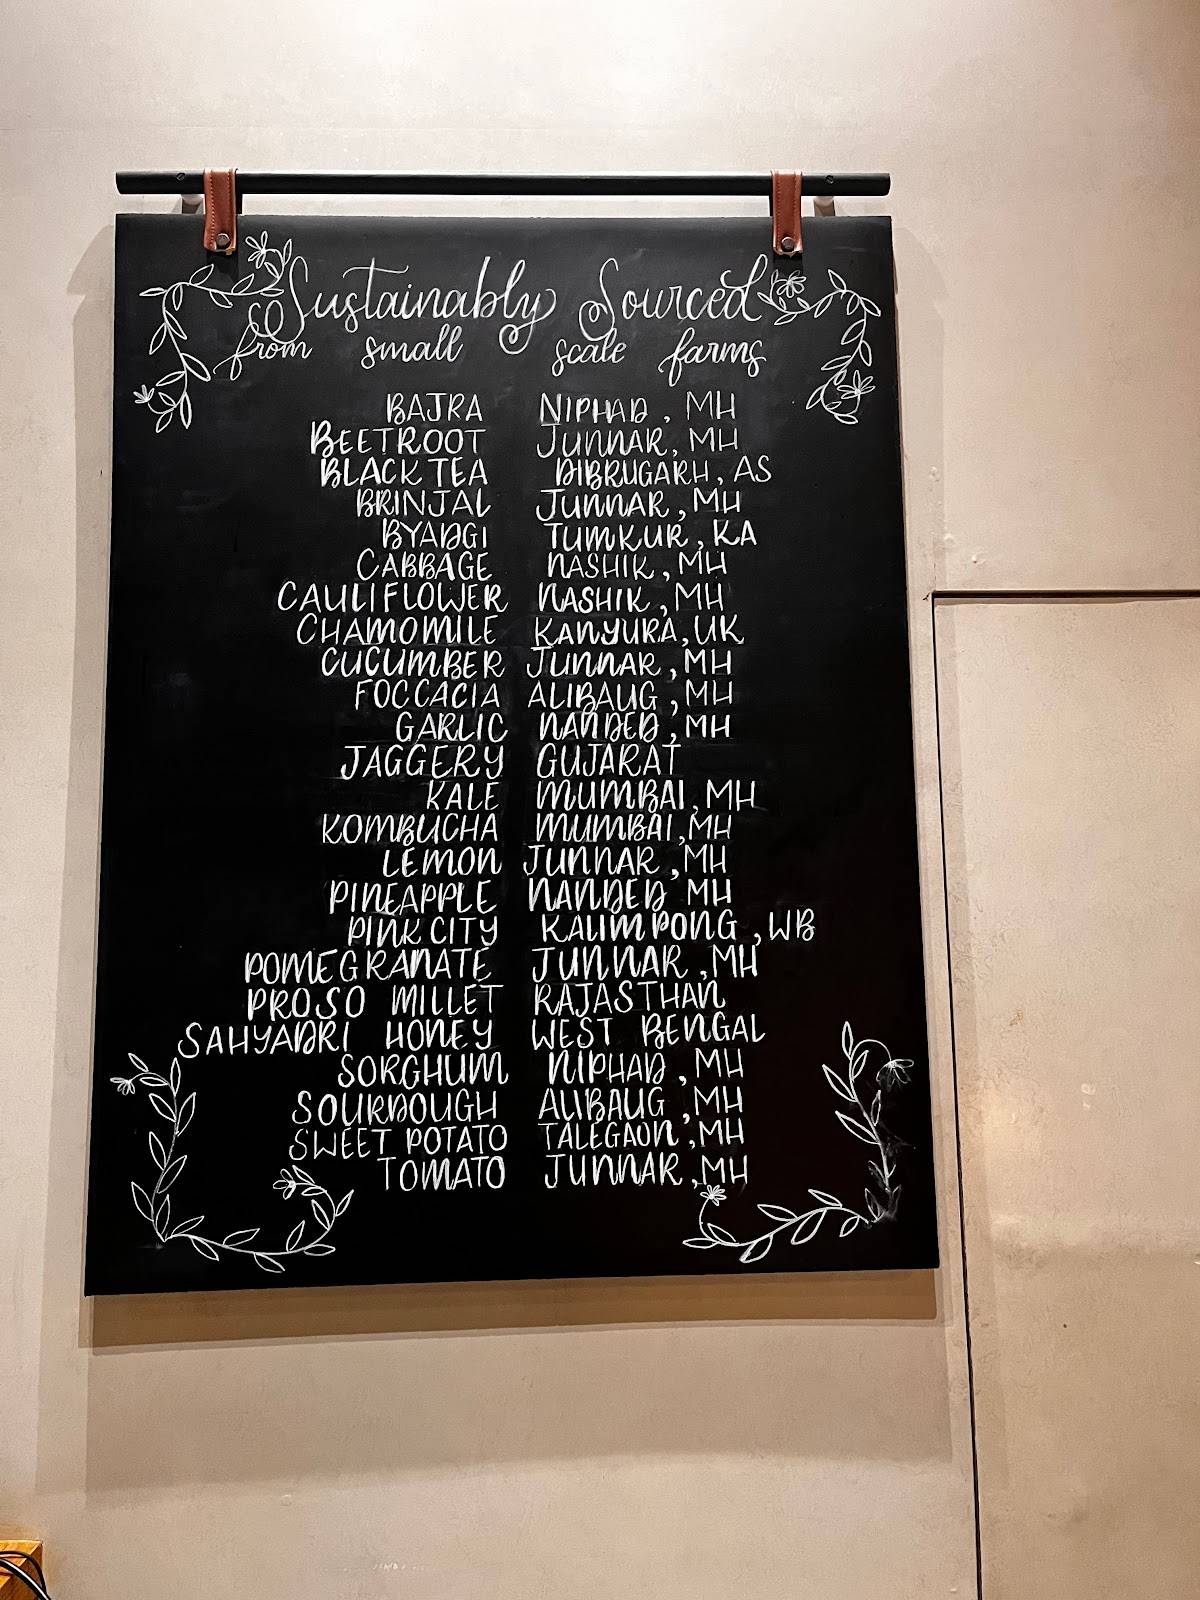 Sustainably Sourced
from small scale farms
BAJRA NIPHAD, MH
BEETROOT JUNNAR, MH
BLACK TEA DIBRUGARH, AS
BRINJAL JUNNAR, MH
BYADGI TUMKUR, KA
CABBAGE NASHIK, MH
CAULIFLOWER NASHIK, MH
CHAMOMILE KANYURA, UK
CUCUMBER JUNNAR, MH
FOCCACIA ALIBAUG, MH
GARLIC NANDED, MH
JAGGERY GUJARAT
KALE MUMBAI, MH
KOMBUCHA MUMBAI, MH
LEMON JUNNAR, MH
PINEAPPLE NANDED MH
PINK CITY KALIMPONG, WB
POMEGRANATE JUNNAR, MH
PROSO MILLET RAJASTHAN
SAHYADRI HONEY WEST BENGAL
SORGHUM NIPHAD, MH
SOURDOUGH ALIBAUG, MH
SWEET POTATO TALEGAON, MH
TOMATO JUNNAR, MH